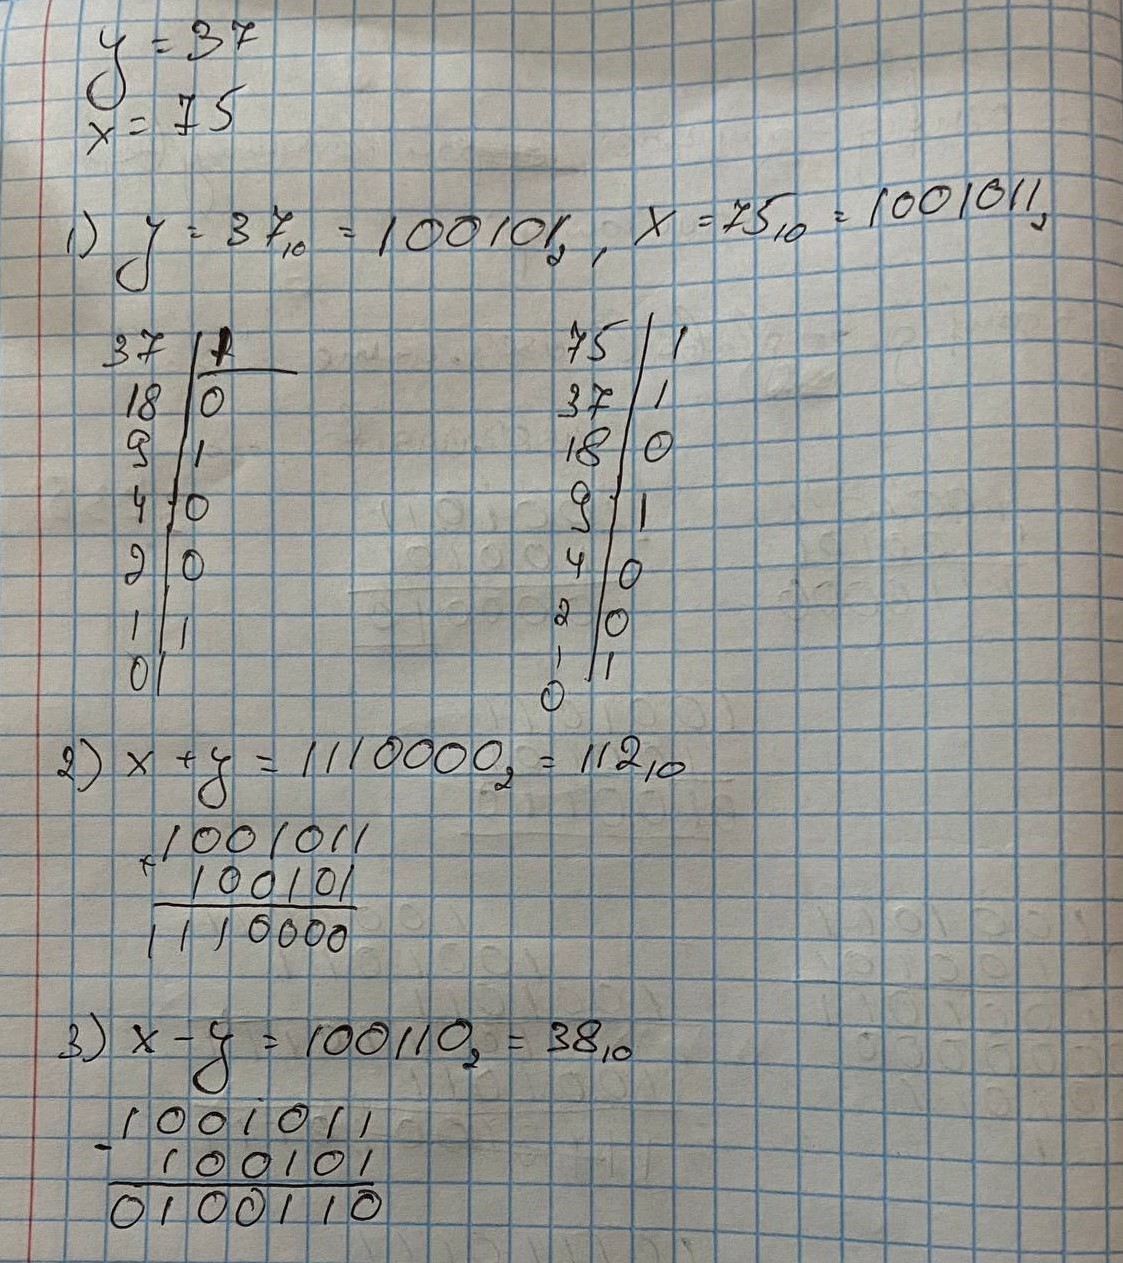 y = 37
x = 75
1) y = 37₁₀ = 100101₂, x = 75₁₀ = 1001011₂
37 | 1
18 | 0
9 | 1
4 | 0
2 | 0
1 | 1
0 |
75 | 1
37 | 1
18 | 0
9 | 1
4 | 0
2 | 0
1 | 1
0
2) x + y = 1110000₂ = 112₁₀
+ 1001011
100101
1110000
3) x - y = 100110₂ = 38₁₀
- 1001011
100101
0100110